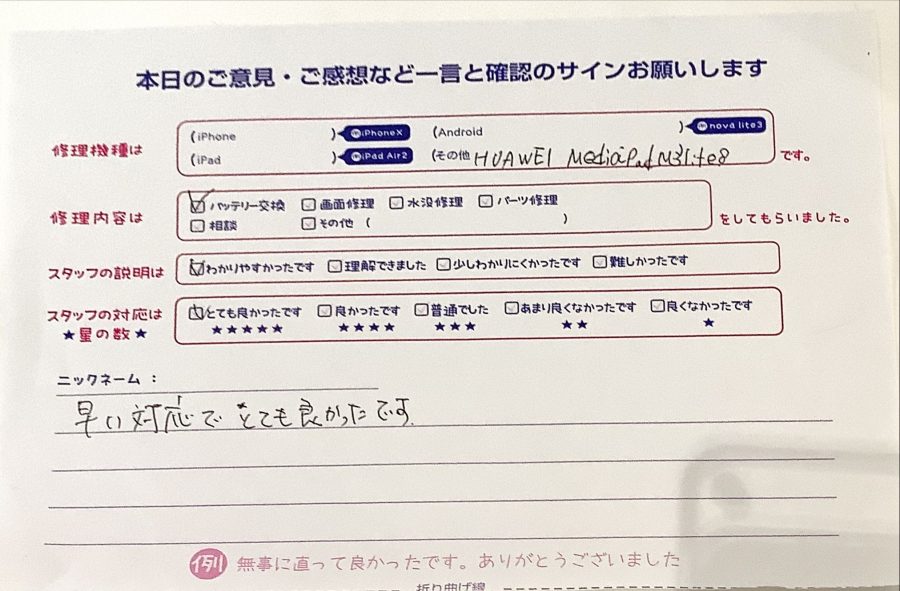 本日のご意見・ご感想など一言と確認のサインお願いします
修理機種は
(iPhone ) iPhoneX (Android ) nova lite3
(iPad ) iPad Air2 (その他 HUAWEI MediaPad M3lite8 です。
修理内容は
バッテリー交換 画面修理 水没修理 パーツ修理
相談 その他 ( )
をしてもらいました。
スタッフの説明は わかりやすかったです 理解できました 少しわかりにくかったです 難しかったです
スタッフの対応は とても良かったです 良かったです 普通でした あまり良くなかったです 良くなかったです
★星の数★ ★★★★★ ★★★★ ★★★ ★★ ★
ニックネーム：
早い対応でとても良かったです.
例 無事に直って良かったです。ありがとうございました
折り曲げ線